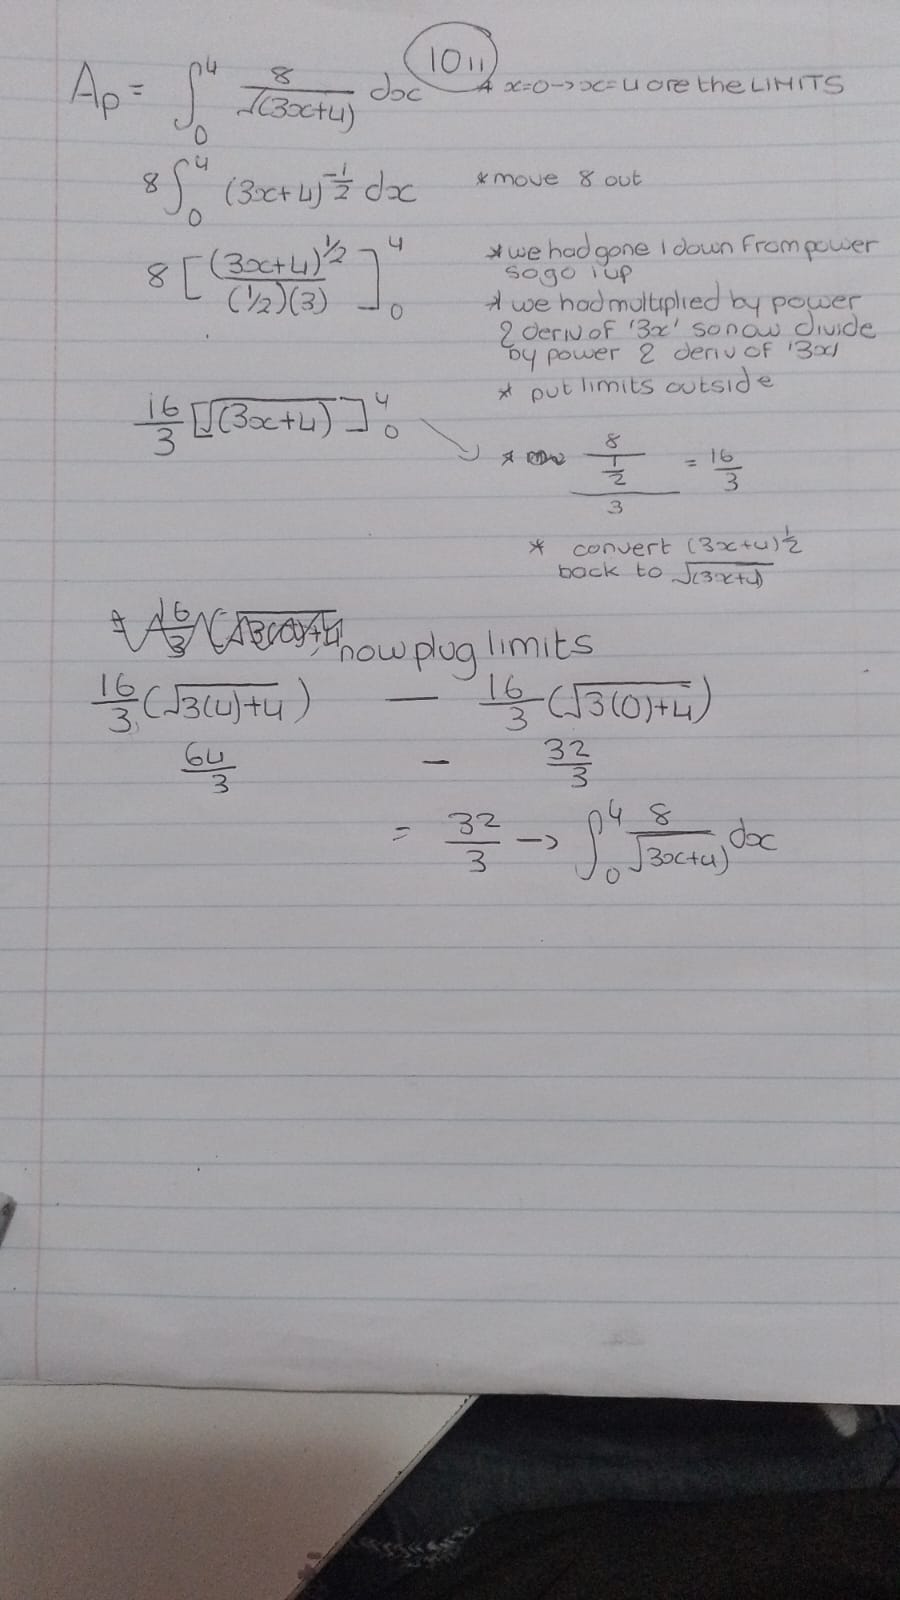 10 ii
Ap = ∫₀⁴ 8/√(3x+4) dx * x=0 → x=4 are the LIMITS
8 ∫₀⁴ (3x+4)^-1/2 dx * move 8 out
8 [ (3x+4)^1/2 / (1/2)(3) ]₀⁴ * we had gone 1 down from power
so go 1 up
* we had multiplied by power
& deriv of '3x' so now divide
by power & deriv of '3x'
* put limits outside
16/3 [ √(3x+4) ]₀⁴
* 8/(1/2)/3 = 16/3
* convert (3x+4)^1/2
back to √(3x+4)
now plug limits
16/3 (√3(4)+4) — 16/3 (√3(0)+4)
64/3 - 32/3
= 32/3 → ∫₀⁴ 8/√(3x+4) dx